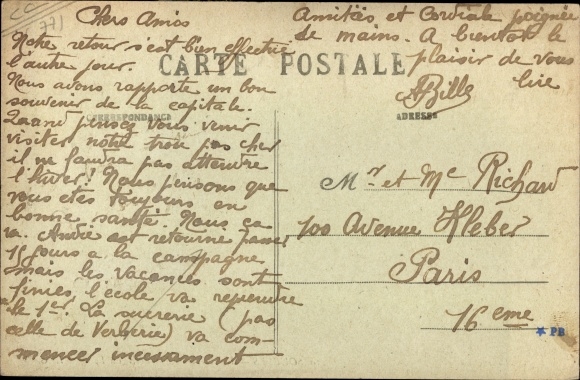 Chers Amis
Notre retour s'est bien effectué
l'autre jour.
Nous avons rapporte un bon
souvenir de la capitale.
Quand pensez vous venir
visiter notre trou pas cher
il ne faudra pas attendre
l'hiver! Nous pensons que
vous etes toujours en
bonne santé. Nous ça
va. André est retourne passer
15 jours a la campagne
mais les vacances sont
finies, l'école va reprendre
le 1er. La sucrerie (pas
celle de Verberie) va com-
mencer incessament
Amitiés et Cordiale poignée
de mains. A bientot le
plaisir de vous
lire
ABille
CARTE POSTALE
CORRESPONDANCE
ADRESSE
Mr et Me Richard
100 Avenue Kleber
Paris
16 eme
PB
771